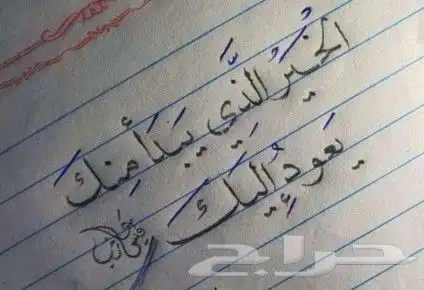 الخَيرُ الذَّي يَبَدَأ مِنكَ
يَعَودُ إِليَكَ
حراج